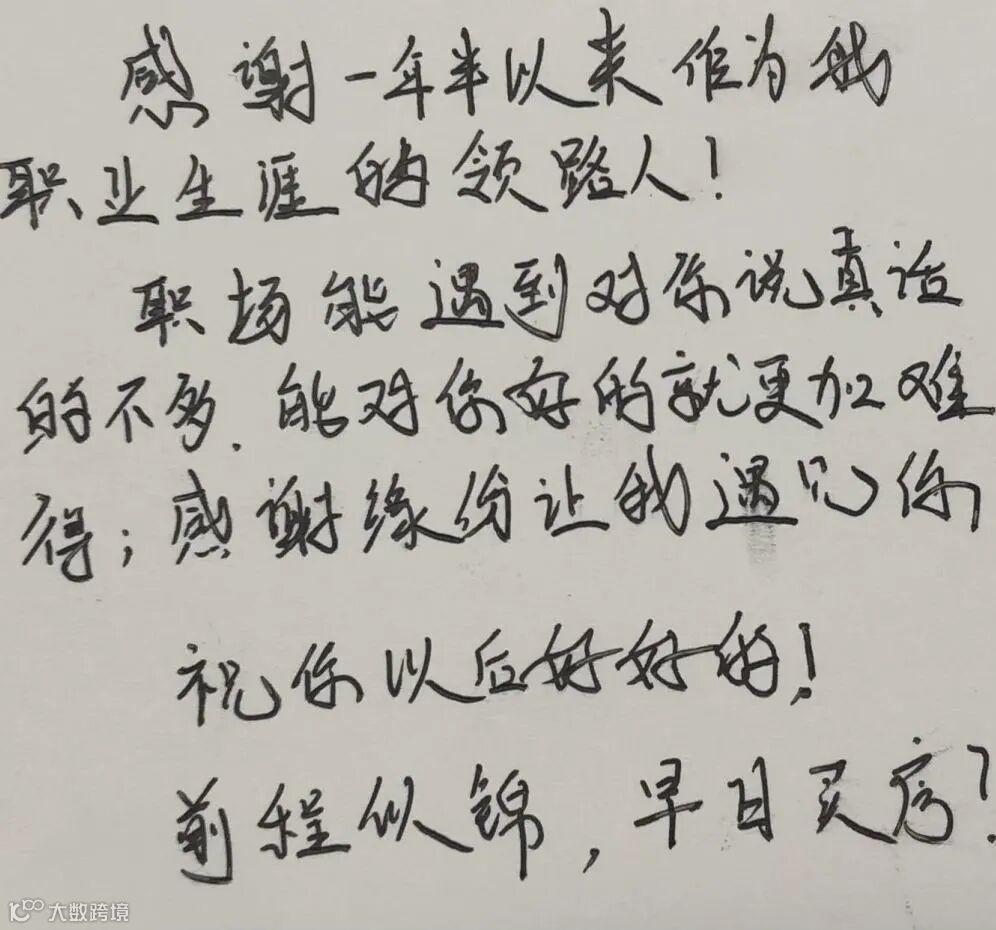 感谢一年半以来作为我
职业生涯的领路人!
职场能遇到对你说真话
的不多.能对你好的就更加难
得;感谢缘份让我遇见你
祝你以后好好的!
前程似锦,早日买房!
大数跨境